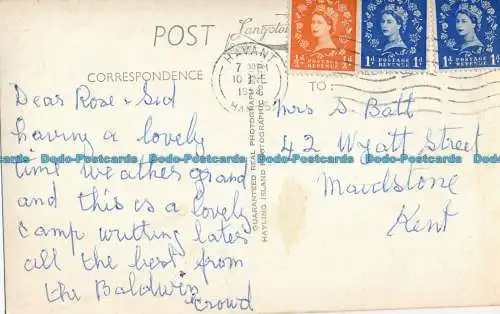 POST
Langsto
CORRESPONDENCE
TO:
HAVANT
7 30 PM
10
19
HA
POSTAGE REVENUE
½d ½d
POSTAGE REVENUE
1d 1d
POSTAGE REVENUE
1d 1d
Dear Rose & Sid
having a lovely
time weather grand
and this is a lovely
camp writting later
all the best from
the Baldwin
crowd
GUARANTEED REAL PHOTOGRAPH
HAYLING ISLAND PHOTOGRAPHIC
Mrs S. Batt
42 Wyatt Street
Maidstone
Kent
Dodo-Postcards Dodo-Postcards Dodo-Postcards Dodo-Postcards Dodo-Postcards